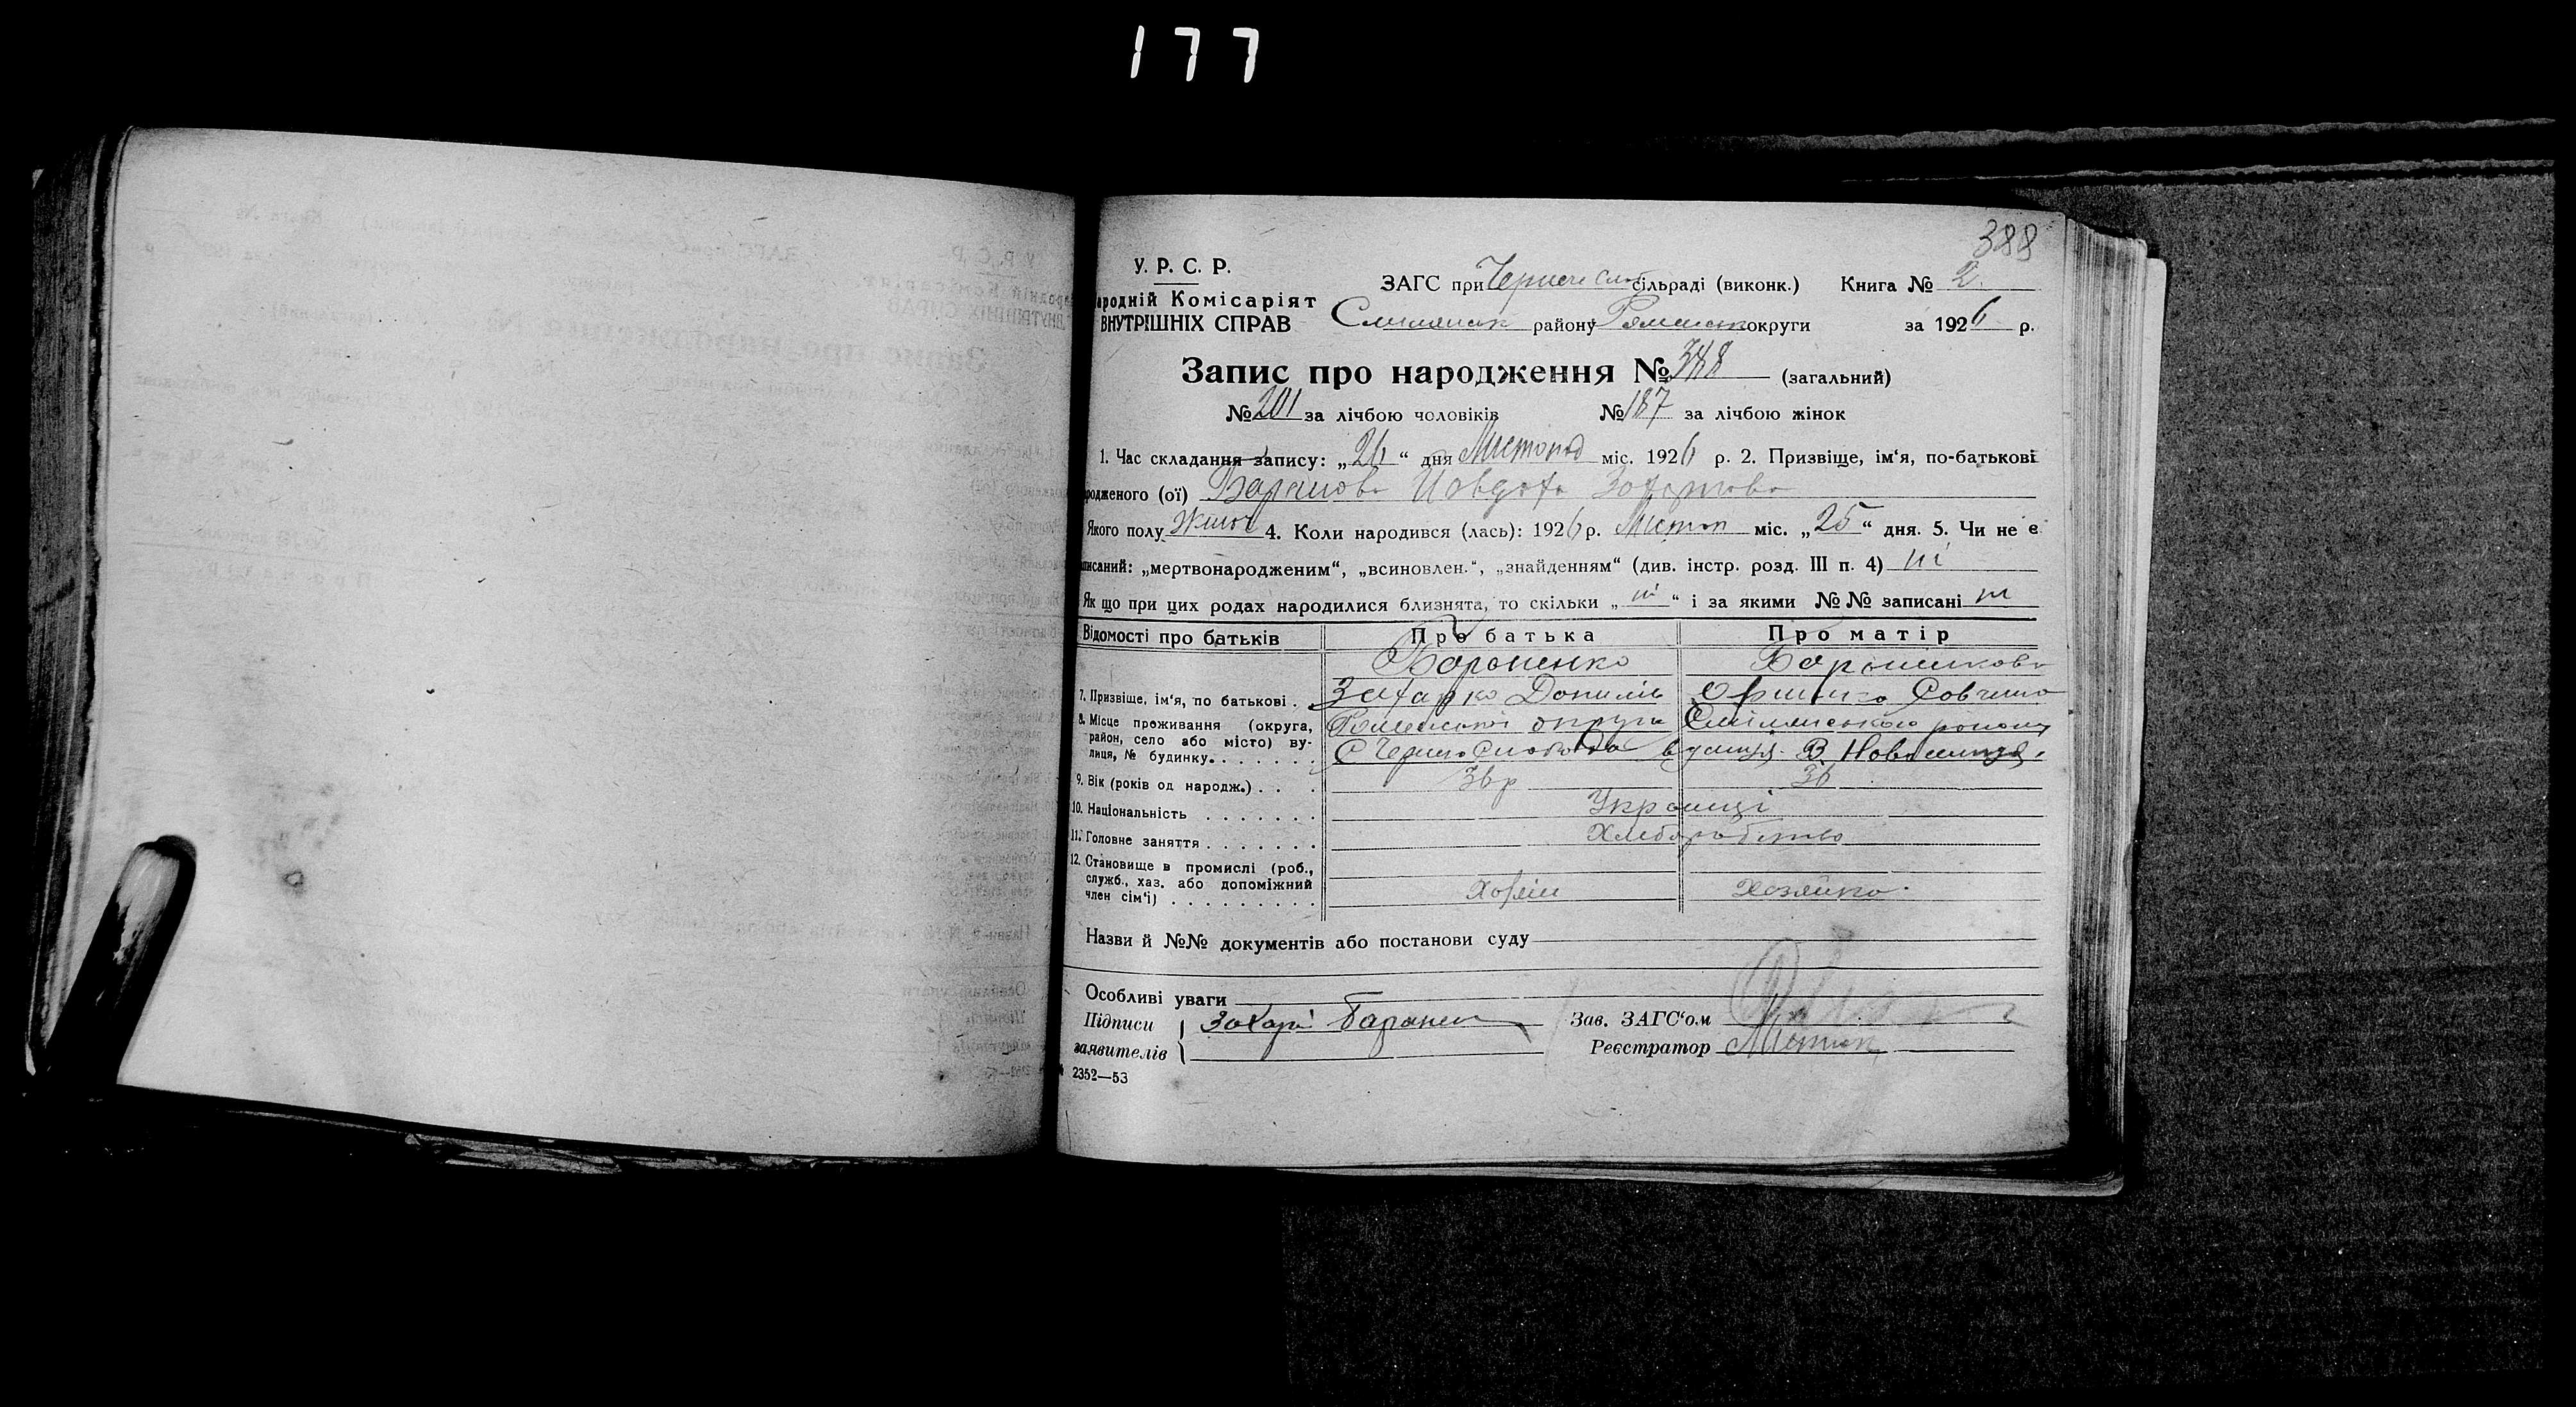 177
388
У. Р. С. Р.
ародній Комісаріят
ВНУТРІШНІХ СПРАВ
ЗАГС при Чернече Слоб сільраді (виконк.) Книга № 2
району округи за 1926 р.
Запис про народження № 388 (загальний)
№ 201 за лічбою чоловіків № 187 за лічбою жінок
1. Час складання запису: „26“ дня Листопад міс. 1926 р. 2. Призвіще, ім‘я, по-батькові
родженого (ої)
Якого полу 4. Коли народився (лась): 1926 р. Листоп міс. „25“ дня. 5. Чи не є
писаний: „мертвонародженим“, „всиновлен.“, „знайденням“ (див. інстр. розд. III п. 4) ні
Як що при цих родах народилися близнята, то скільки „ні“ і за якими №№ записані ні
Відомості про батьків Про батька Про матір
Бараненко
7. Призвіще, ім‘я, по батькові . Захарко Данилів
8. Місце проживання (округа, район, село або місто) вулиця, № будинку. Роменської округи Смілянського району
вулиця В. Новоселиця.
9. Вік (років од народж.) . . . 36 р 36
10. Національність . . . . . . . Українці
11. Головне заняття . . . . . . . Хлеборобство
12. Становище в промислі (роб.,
служб., хаз. або допоміжний
член сім‘ї) . . . . . . . . . Хозяйка.
Назви й №№ документів або постанови суду
Особливі уваги
Підписи Захарій Баранен Зав. ЗАГС‘ом
заявителів Реєстратор
2352—53